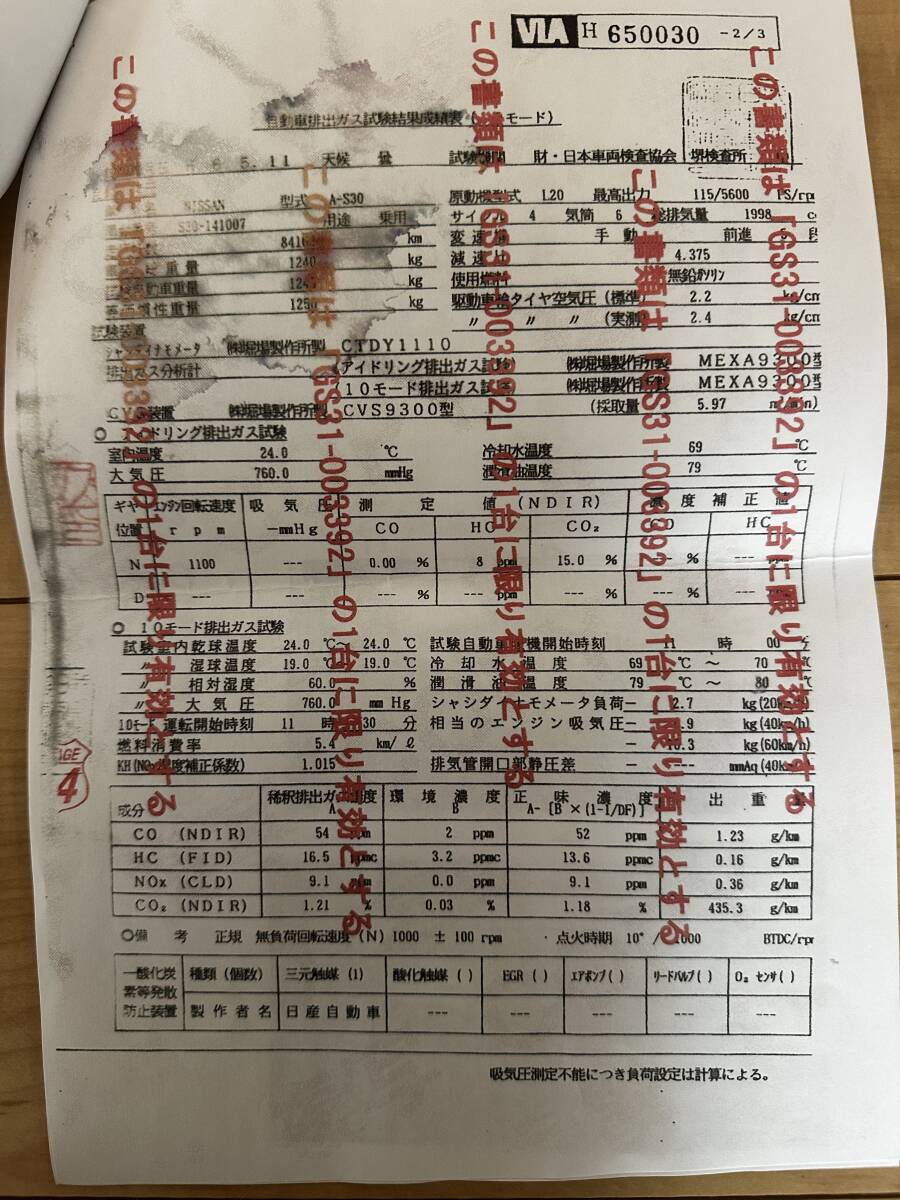 VIA H 650030 -2/3
自動車排出ガス試験結果成績表 モード)
5.11 天候 試験機関 財・日本車両検査協会 堺検査所
NISSAN 型式 A-S30 原動機型式 L20 最高出力 115/5600 PS/rpm
S30-141007 用途 乗用 サイクル 4 気筒 6 総排気量 1998 cc
km 変速機 手動 前進 5 段
重量 1240 kg 減速比 4.375
自動車重量 kg 使用燃料 無鉛ガソリン
等価慣性重量 1250 kg 駆動車輪タイヤ空気圧 (標準) 2.2 kg/cm
試験装置 〃 〃 〃 (実測) 2.4 kg/cm
シャシダイナモメータ ㈱堀場製作所製 CTDY1110
排出ガス分析計 (アイドリング排出ガス試験) ㈱堀場製作所製 MEXA9300型
(10モード排出ガス試験) ㈱堀場製作所製 MEXA9300型
CVS装置 ㈱堀場製作所製 CVS9300型 (採取量 5.97
○ アイドリング排出ガス試験
室内温度 24.0 ℃ 冷却水温度 69 ℃
大気圧 760.0 mmHg 潤滑油温度 79 ℃
ギヤ エンジン回転速度 吸気圧 測定値(NDIR) 濃度補正値
位置 rpm -mmHg CO HC CO₂ CO HC
N 1100 --- 0.00 % 8 ppm 15.0 % --- % ---
D --- --- --- % --- ppm --- % --- % ---
○ 10モード排出ガス試験
試験室内乾球温度 24.0 ℃~ 24.0 ℃ 試験自動車 機開始時刻 11 時 00 分
〃 湿球温度 19.0 ℃~ 19.0 ℃ 冷却水温度 69 ℃ ~ 70 ℃
〃 相対湿度 60.0 % 潤滑油温度 79 ℃ ~ 80 ℃
〃 大気圧 760.0 mm Hg シャシダイナモメータ負荷 - 2.7 kg(20km/h)
10モード運転開始時刻 11 時 30 分 相当のエンジン吸気圧 - .9 kg(40km/h)
燃料消費率 5.4 km/ℓ - .3 kg(60km/h)
KH(NOx湿度補正係数) 1.015 排気管開口部静圧差 - --- mmAq(40km
成分 稀釈排出ガス濃度 A 環境濃度 B 正味濃度 A-[B×(1-1/DF)] 排出重量
CO (NDIR) 54 ppm 2 ppm 52 ppm 1.23 g/km
HC (FID) 16.5 ppmc 3.2 ppmc 13.6 ppmc 0.16 g/km
NOx (CLD) 9.1 ppm 0.0 ppm 9.1 ppm 0.36 g/km
CO₂ (NDIR) 1.21 % 0.03 % 1.18 % 435.3 g/km
○備考 正規 無負荷回転速度(N) 1000 ± 100 rpm 点火時期 10°/ 1000 BTDC/rpm
一酸化炭素等発散防止装置 種類(個数) 三元触媒 (1) 酸化触媒 ( ) EGR ( ) エアポンプ ( ) リードバルブ ( ) O₂ センサ ( )
製作者名 日産自動車 --- --- --- --- ---
吸気圧測定不能につき負荷設定は計算による。
この書類は「GS31-003392」の1台に限り有効とする
この書類は「GS31-003392」の1台に限り有効とする
この書類は「GS31-003392」の1台に限り有効とする
この書類は「GS31-003392」の1台に限り有効とする
この書類は「GS31-003392」の1台に限り有効とする
AGE
4